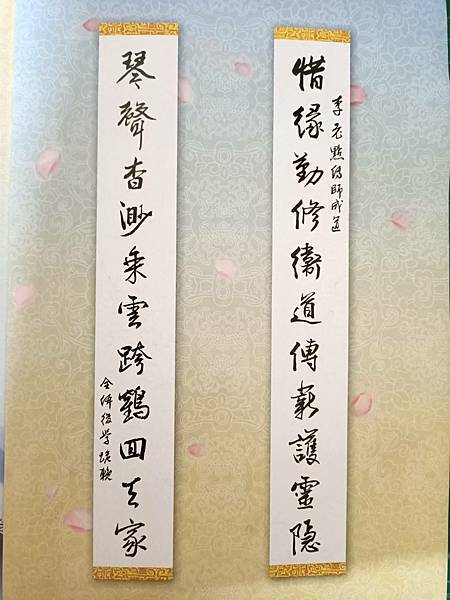 李老點傳師成道
惜緣勤修衛道傳薪護靈隱
琴聲杳渺乘雲跨鶴回天家
全体後学跪輓